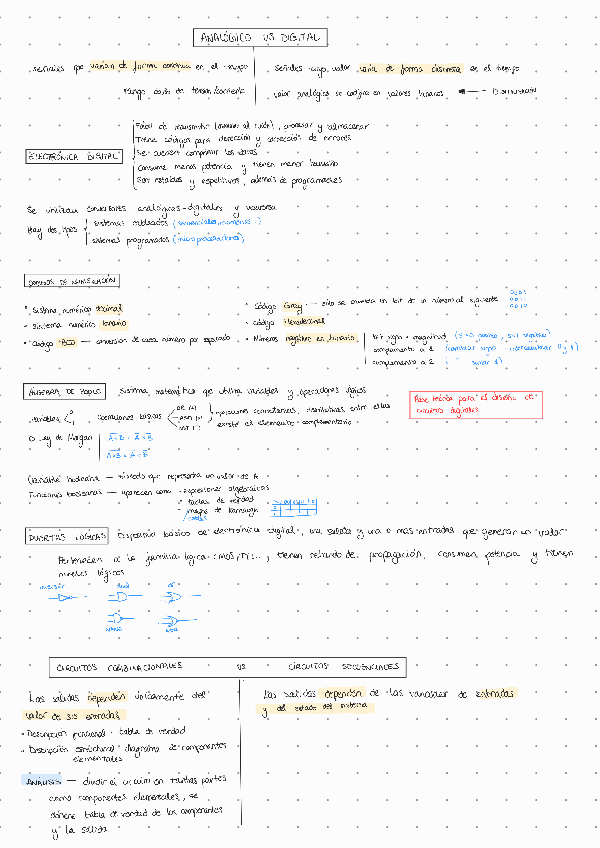 ANALÓGICO VS DIGITAL
señales que varían de forma continua en el tiempo
rango de tensión/corriente
señales cuyo valor varía de forma discreta en el tiempo
valor analógico se codifica en valores binarios
ELECTRÓNICA DIGITAL
Fácil de transmitir (inmune al ruido), procesar y almacenar
Tiene códigos para detección y corrección de errores
Se pueden comprimir los datos
Consume menos potencia y tienen menor tamaño
Son estables y repetitivos, además de programables
Se utilizan conversores analógicos-digitales y viceversa
Hay dos tipos
sistemas cableados
sistemas programados (microprocesadores)
CÓDIGOS DE NUMERACIÓN
• Sistema numérico decimal
• Sistema numérico binario
• Código BCD — conversión de cada número por separado
• Código Gray — sólo se cambia un bit de un número al siguiente
• Código Hexadecimal
• Números negativos en binario
bit signo + magnitud (S=0 positivo, S=1 negativo)
complemento a 1 (cambiar signo intercambiar 0 y 1)
complemento a 2 ( " sumar 1)
ÁLGEBRA DE BOOLE
Sistema matemático que utiliza variables y operadores lógicos
variables 0 1
operaciones básicas
OR (+)
AND (·)
NOT (¯)
operaciones conmutativas, distributivas entre ellas
existe el elemento complementario
Base teórica para el diseño de circuitos digitales
Ley de Morgan
Variable booleana — símbolo que representa un valor de A
Funciones booleanas — aparecen como
• expresiones algebraicas
• tablas de verdad
• mapas de Karnaugh
PUERTAS LÓGICAS
Dispositivo básico de electrónica digital, una salida y una o más entradas que generan un "valor"
Pertenecen a la familia lógica CMOS, TTL..., tienen retardo de propagación, consumen potencia y tienen
niveles lógicos
INVERSOR
AND
OR
NAND
NOR
CIRCUITOS COMBINACIONALES VS CIRCUITOS SECUENCIALES
Las salidas dependen únicamente del
valor de sus entradas
• Descripción funcional: tabla de verdad
• Descripción estructural: diagrama de componentes
elementales
ANÁLISIS — dividir el circuito en tantas partes
como componentes elementales, se
obtiene tabla de verdad de los componentes
y la salida
Las salidas dependen de las variables de entradas
y del estado del sistema